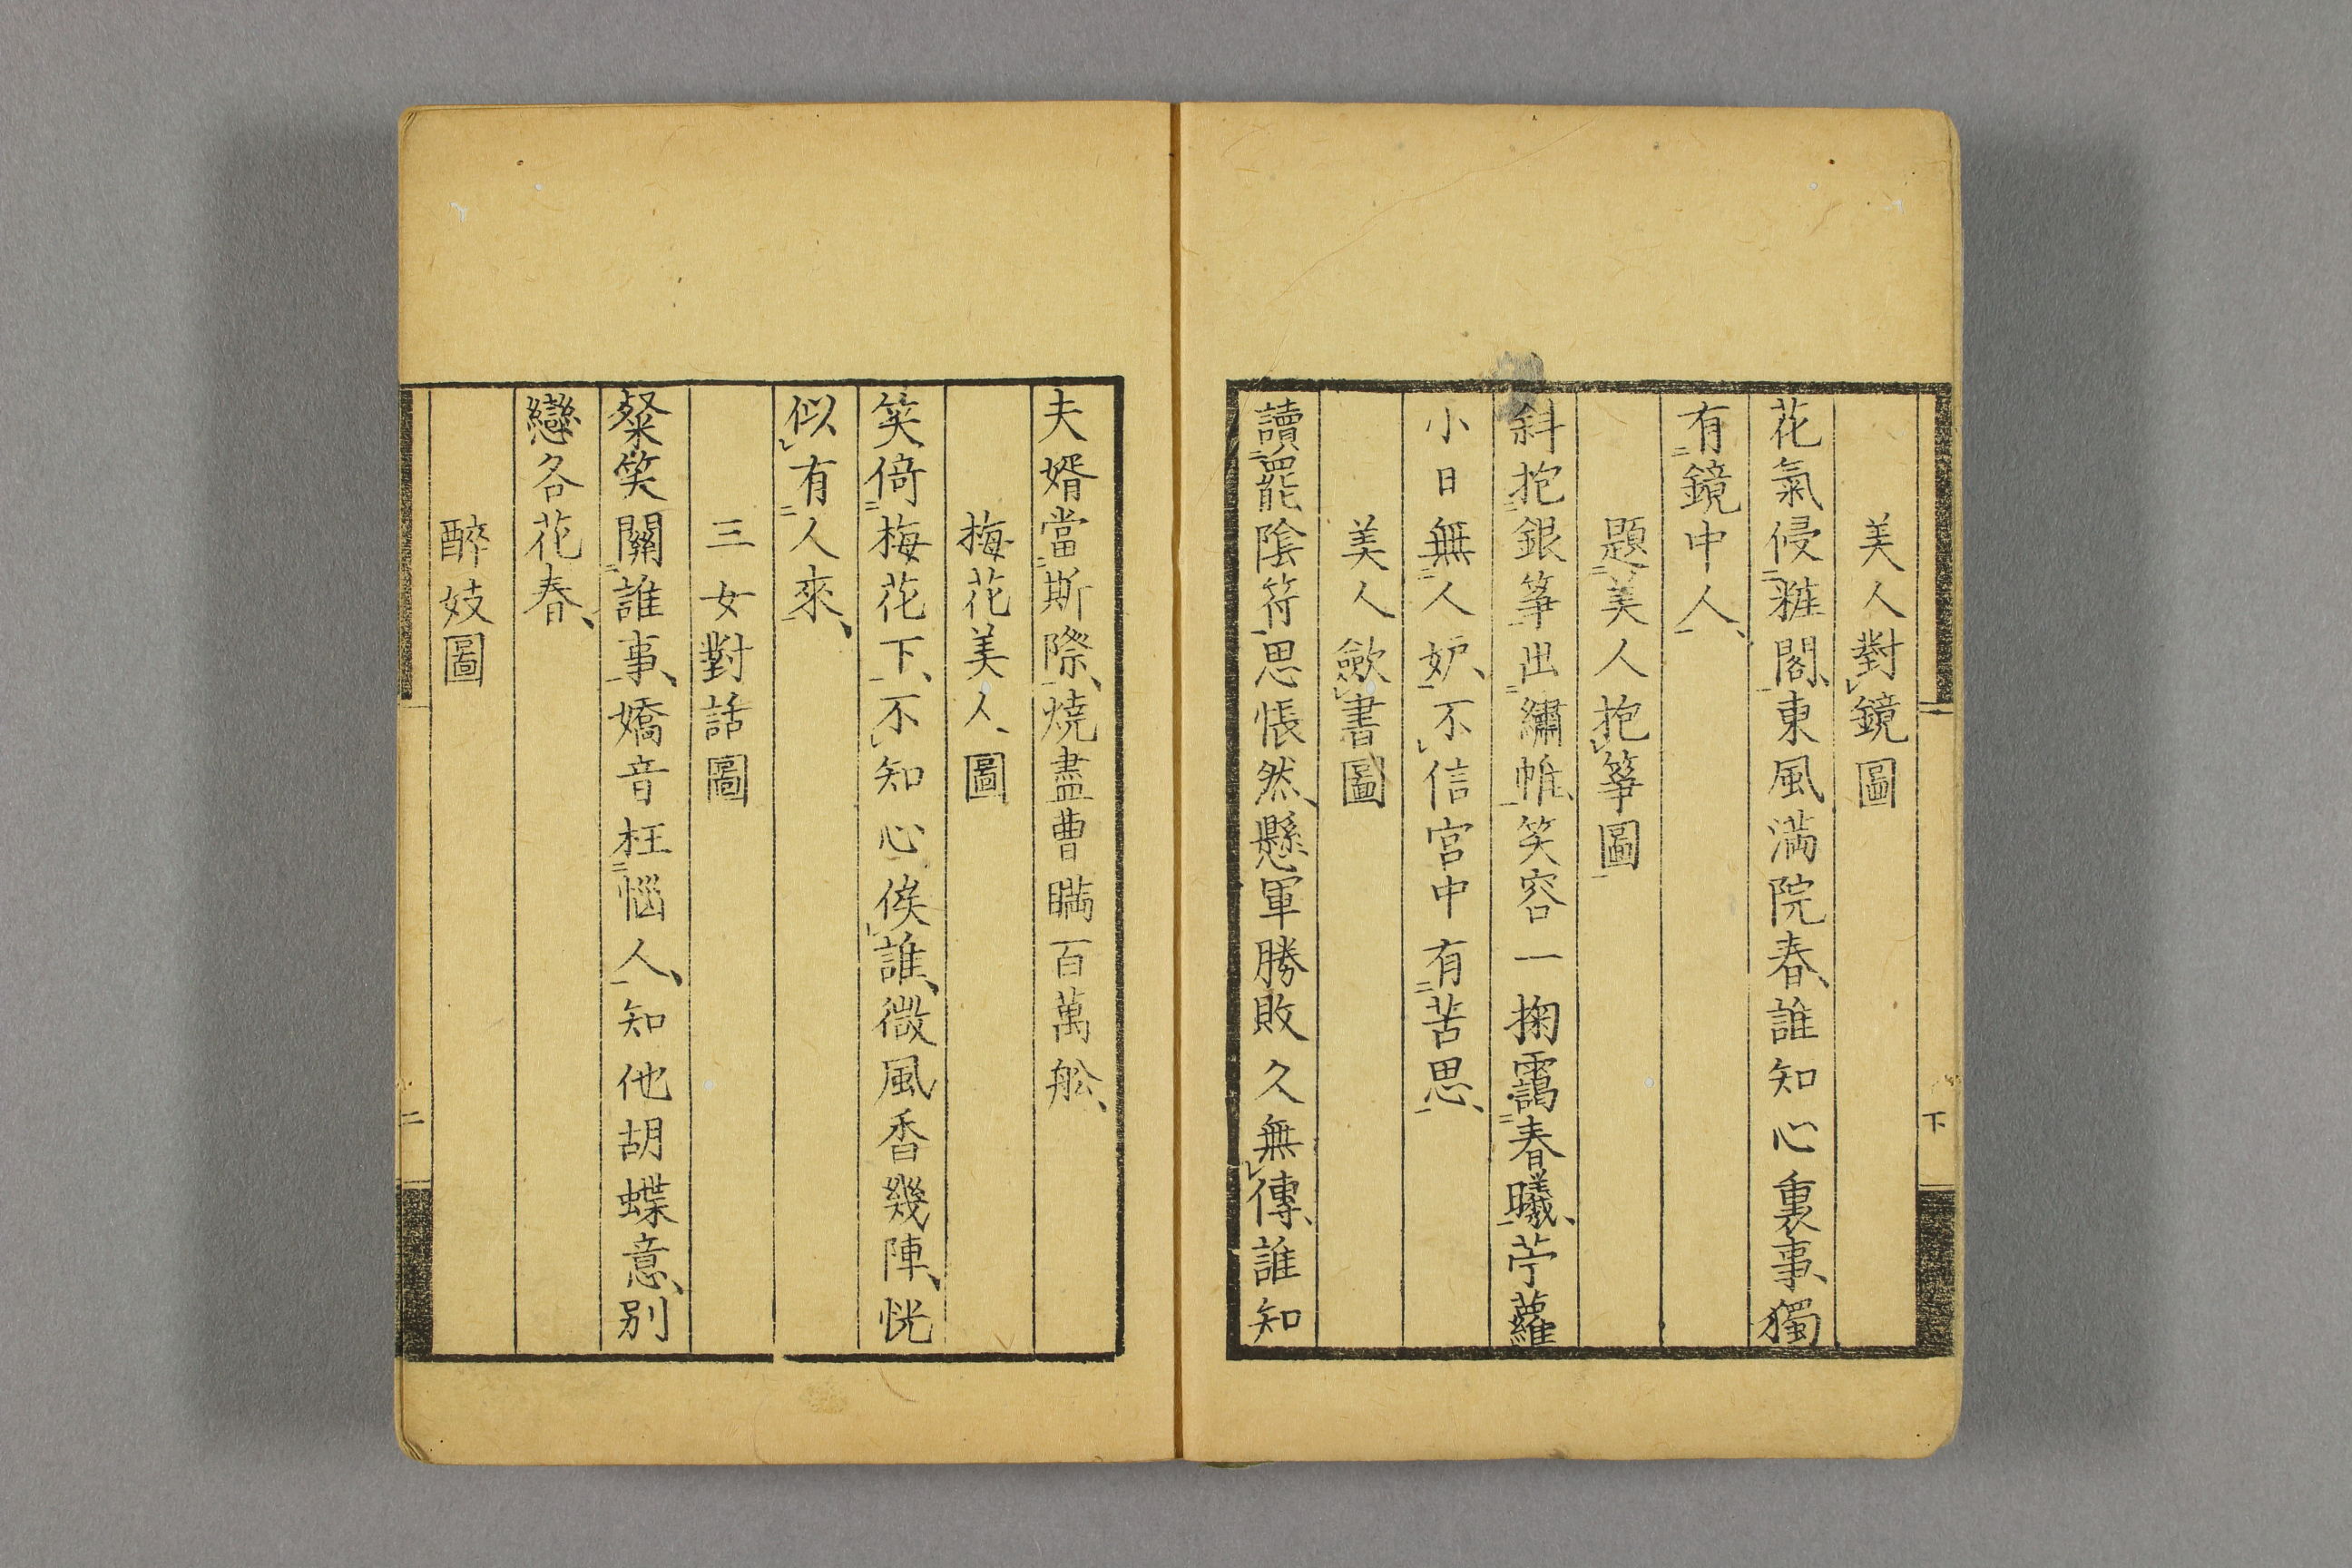 美人對鏡圖
花氣侵粧閣、東風満院春、誰知心裏事、獨
有鏡中人、
題美人抱箏圖
斜抱銀箏出繡帷、笑容一掬靄春曦、苧蘿
小日無人妒、不信宮中有苦思、
美人歛書圖
讀罷陰符思悵然、懸軍勝敗久無傳、誰知
下
夫婿當斯際、燒盡曹瞞百萬舩、
梅花美人圖
笑倚梅花下、不知心俟誰、微風香幾陣、恍
似有人來、
三女對話圖
粲笑關誰事、嬌音枉惱人、知他胡蝶意、別
戀各花春、
醉妓圖
二